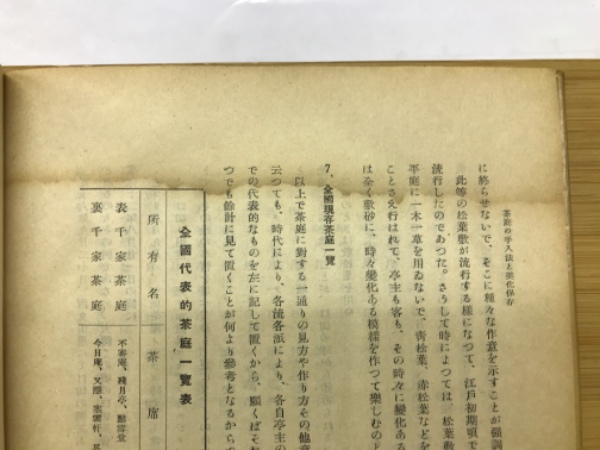 茶庭の手入法と美化保存
に終らせないで、そこに種々な作意を示すことが强調
此等の松葉敷が流行する樣になつて、江戶初期頃で
流行したのであつた。さうして時によつては、松葉敷
平庭に一木一草を用ゐないで、靑松葉、赤松葉などを
ことさへ行はれて、亭主も客も、その時々に變化ある
は全く敷砂に、時々變化ある模樣を作つて樂しむのと
7、全國現存茶庭一覽
以上で茶庭に對する一通りの見方や作り方その他意
云つても、時代により、各流各派により、各自亭主の
での代表的なものを左に記して置くから、願くばそれ
つでも餘計に見て置くことが何より參考となるからで
全國代表的茶庭一覽表
所有名 茶席
表千家茶庭 不審庵、殘月亭、點雪堂
裏千家茶庭 今日庵、又隱、寒雲軒